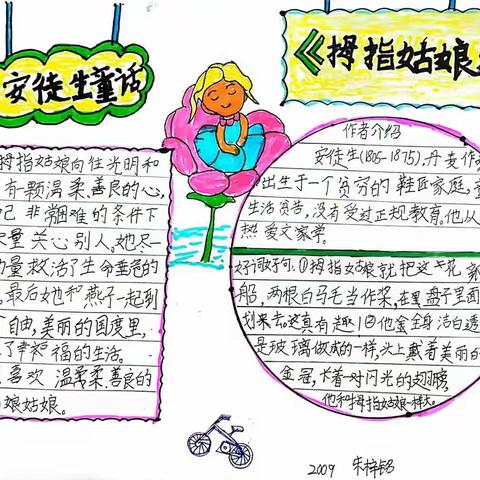 安徒生童话
《拇指姑娘
拇指姑娘向往光明和
有一颗温柔、善良的心,
己非常困难的条件下
量关心别人。她尽
力量救活了生命垂危的
。最后她和燕子一起到
个自由,美丽的国度里,
了幸福的生活。
喜欢温柔、善良的
姑娘。
作者介绍
安徒生(1805-1875),丹麦作
出生于一个贫穷的鞋匠家庭,童
生活贫苦,没有受过正规教育。他从
热爱文学。
好词好句:①拇指姑娘就把这片花
船,两根白马毛当作桨,在里盘子里面
划来去。这真有趣!②他全身洁白透
是玻璃做成的一样,头上戴着美丽的
金冠,长着一对闪光的翅膀,
他和拇指姑娘一样大。
2009 朱梓铭